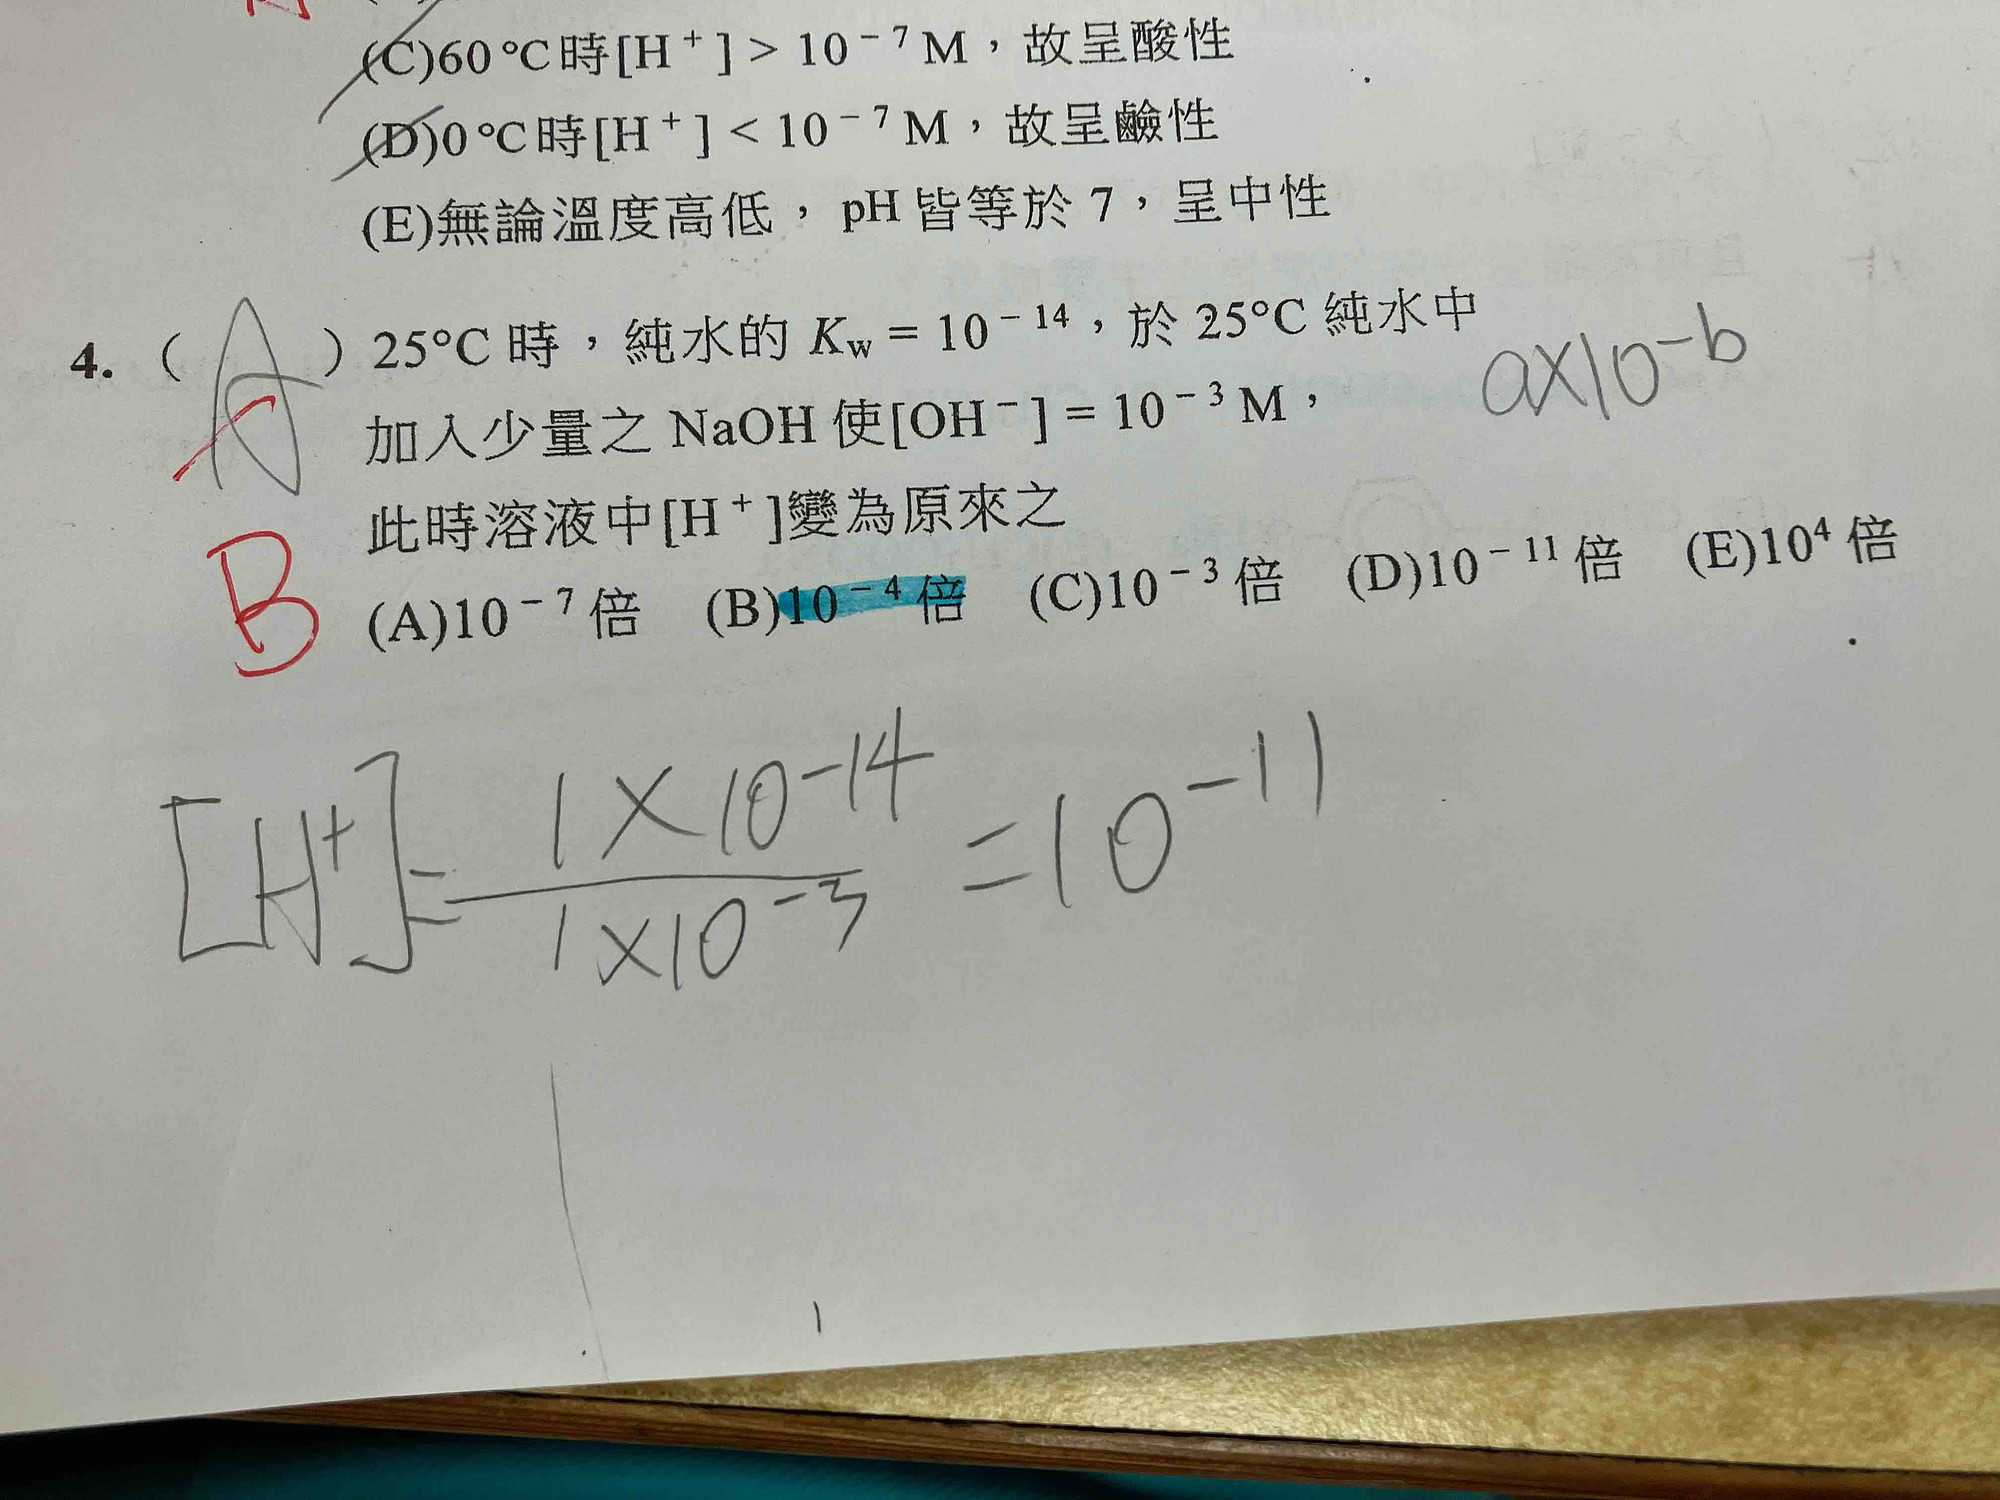 (C)60 °C時[H⁺] > 10⁻⁷ M,故呈酸性
(D)0 °C時[H⁺] < 10⁻⁷ M,故呈鹼性
(E)無論溫度高低,pH 皆等於 7,呈中性
4. ( A ) 25°C 時,純水的 Kw = 10⁻¹⁴,於 25°C 純水中
加入少量之 NaOH 使[OH⁻] = 10⁻³ M,
a×10⁻ᵇ
此時溶液中[H⁺]變為原來之
B
(A)10⁻⁷ 倍 (B)10⁻⁴ 倍 (C)10⁻³ 倍 (D)10⁻¹¹ 倍 (E)10⁴ 倍
[H⁺]= 1×10⁻¹⁴ / 1×10⁻³ =10⁻¹¹